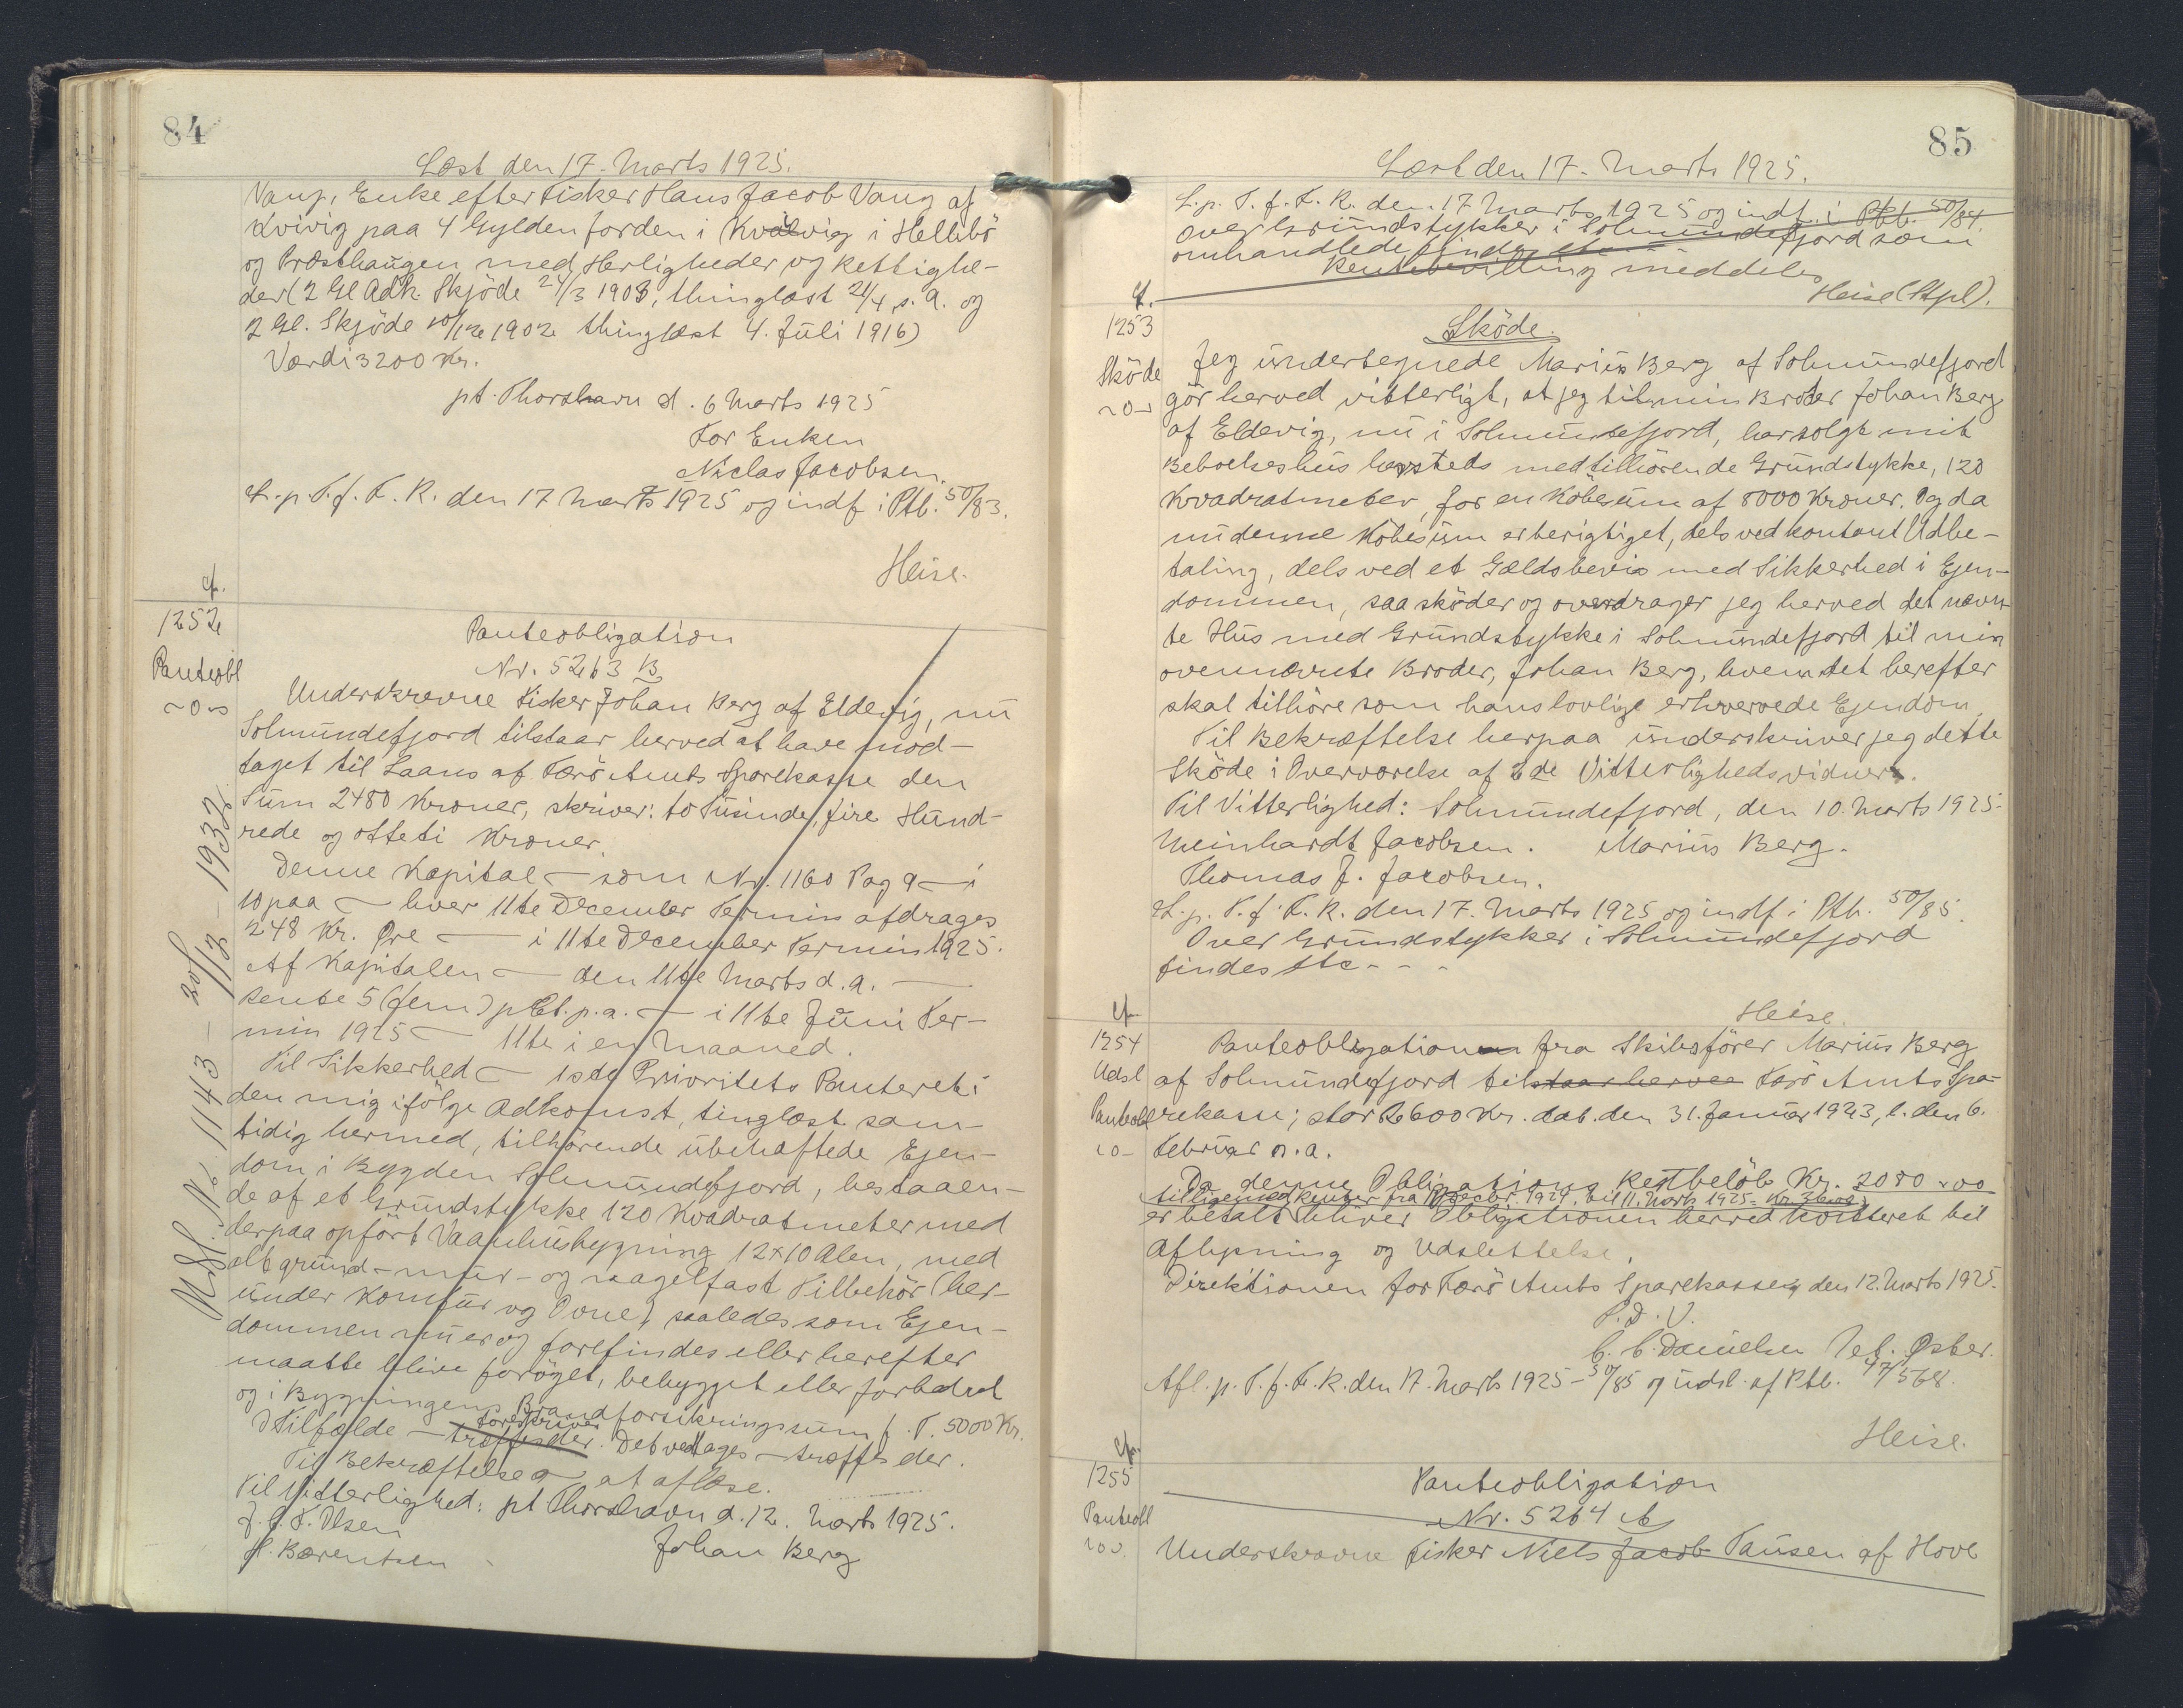 84
Læst den 17. Marts 1925.
Vang, Enke efter Fisker Hans Jacob Vang af
Kvivig paa 4 Gylden Jorden i Kvivig i Hellebö
og Præsthaugen med Herligheder og Rettighe-
der (2 Gl Adk. Skjöde 24/3 1903, thinglæst 21/4 s.A. og
2 Gl. Skjöde 10/12 1902 thinglæst 4. Juli 1916)
Værdi 3200 Kr.
pt. Thorshavn d. 6 Marts 1925
For Enken
Niclas Jacobsen.
L. p. T. f. F. R. den 17 Marts 1925 og indf. i Ptb. 50/83.
Heise.
1252
Panteobl
Panteobligation
Nr. 5263 B
Underskrevne Fisker Johan Berg af Eldevig, nu
Solmundefjord tilstaar herved at have mod-
taget til Laans af Færö Amts Sparekasse den
Sum 2480 Kroner, skriver: to Tusinde, fire Hund-
rede og otteti Kroner.
Denne Kapital – som Nr. 1160 Pag 9 – i
10 paa – hver 11te December Termin afdrages
248 Kr. Øre – i 11te December Termin 1925.
Af Kapitalen – den 11te Marts d.a. –
rente 5 (fem) pCt. p.a. – i 11te Juni Ter-
min 1925 – 11te i en Maaned.
Til Sikkerhed – 1ste Prioritets Panteret i
den mig ifölge Adkomst, tinglæst sam-
tidig hermed, tilhørende übehæftede Ejen-
dom i Bygden Solmundefjord, bestaaen-
de af et Grundstykke 120 Kvadratmeter med
derpaa opfört Vaaningshusbygning 12x10 Alen, med
alt grund- mur- og nagelfast Tilbehör (her-
under Komfur og Ovne) saaledes som Ejen-
dommen nu er og forefindes eller herefter
maatte blive foröget, bebygget eller forbedret
og i Bygningens Brandforsikringssum f. T. 5000 Kr.
I Tilfælde – foreskriver træffes der. Det vedtages – træffes der.
Til Bekræftelse – at aflæse.
Til Vitterlighed: pt Thorshavn d. 12. Marts 1925.
J. C. F. Olsen
Johan Berg
H. Bærentsen
Udsl. No 1143 – 20/11/3 – 1932.
85
Læst den 17. Marts 1925.
L. p. T. f. F. R. den 17 Marts 1925 og indf. i Ptb. 50/84.
Over Grundstykker i Solmundefjord som
omhandlede findes etc
Rentebevilling meddeles
Heise (Stpl).
1253
Sköde
Sköde.
Jeg undertegnede Marius Berg af Solmundefjord
gör herved vitterligt, at jeg til min Broder Johan Berg
af Eldevig, nu i Solmundefjord, har solgt mit
Beboelseshus hersteds med tilhörende Grundstykke, 120
Kvadratmeter, for en Köbesum af 8000 Kroner. Og da
nu denne Köbesum er berigtiget, dels ved kontant Udbe-
taling, dels ved et Gældsbevis med Sikkerhed i Ejen-
dommen, saa sköder og overdrager jeg herved det nævn-
te Hus med Grundstykke i Solmundefjord til min
ovennævnte Broder, Johan Berg, hvem det herefter
skal tilhöre som hans lovlige erhvervede Ejendom.
Til Bekræftelse herpaa underskriver jeg dette
Sköde i Overværelse af 2de Vitterlighedsvidner.
Til Vitterlighed: Solmundefjord, den 10. Marts 1925.
Meinhardt Jacobsen. Marius Berg.
Thomas J. Jacobsen.
L. p. T. f. F. R. den 17. Marts 1925 og indf. i Ptb. 50/85.
Over Grundstykker i Solmundefjord
findes etc - - -
Heise.
1254
Udsl
Panteobl
Panteobligation fra Skibsförer Marius Berg
af Solmundefjord tilstaar herved Færö Amts Spa-
rekasse; stor 2600 Kr. dat. den 31. Januar 1923, l. den 6.
Februar n.a.
Da denne Obligations Restbelöb Kr. 2080 00
tilligemed Renter fra 11 Decbr. 1924 til 11. Marts 1925
er betalt bliver Obligationen herved kvitteret til
Aflysning og Udslettelse.
Direktionen for Færö Amts Sparekasse, den 12. Marts 1925.
P.D.V.
C. C. Danielsen Joh. Öster.
Afl. p. T. f. F. R. den 17. Marts 1925 – 50/85 og udsl. af Ptb. 47/568.
Heise.
1255
Panteobl
Panteobligation
Nr. 5264
Underskrevne Fisker Niels Jacob Pausen af Hove